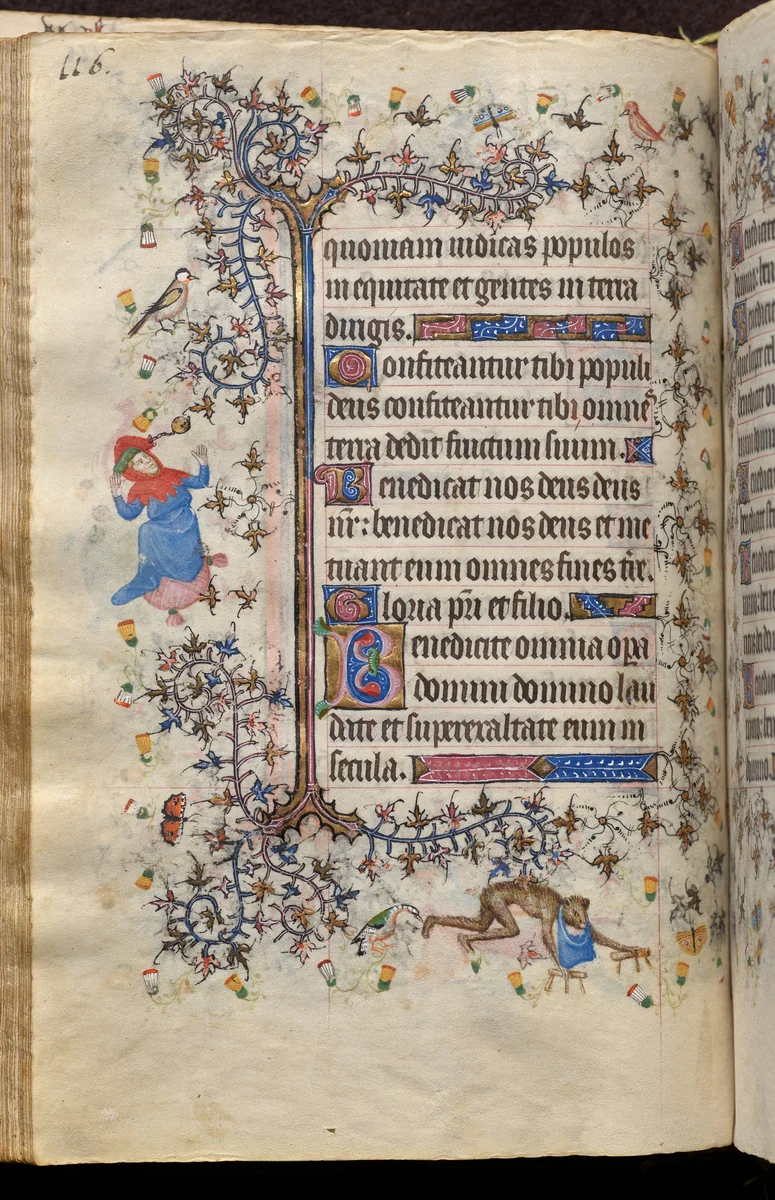 116.
quoniam iudicas populos
in equitate et gentes in terra
dirigis.
Confiteantur tibi populi
deus confiteantur tibi omnes
terra dedit fructum suum.
Benedicat nos deus deus
nr̄: benedicat nos deus et me
tuant eum omnes fines tr̄e.
Gloria pr̄i et filio.
Benedicite omnia oꝑa
domini domino lau
date et superexaltate eum in
secula.